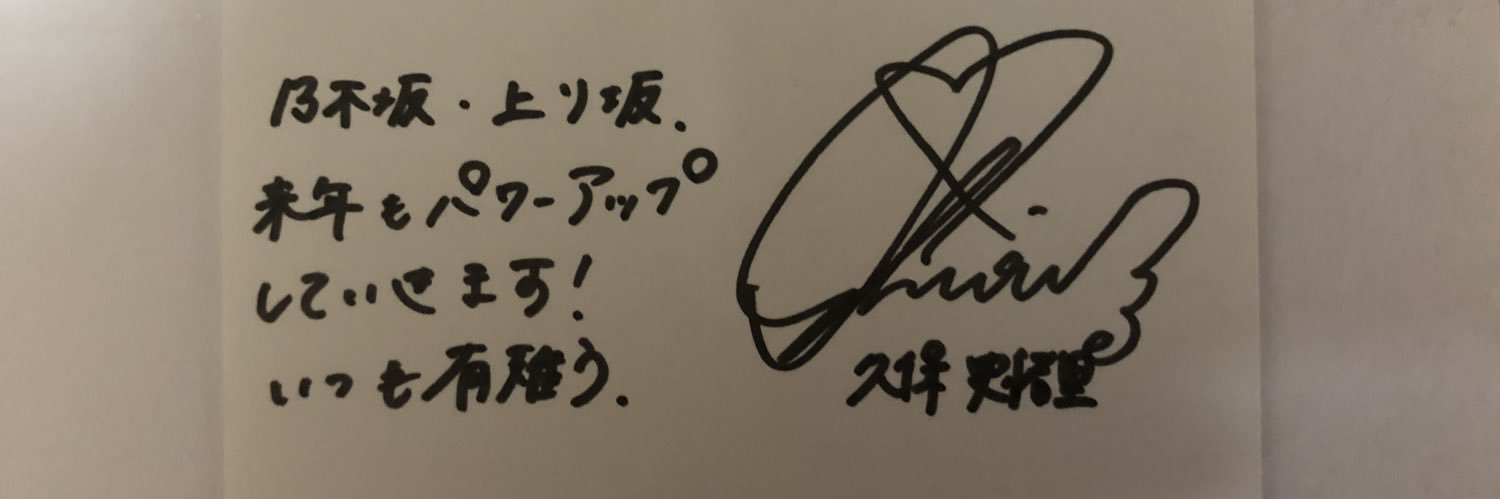 乃木坂・上り坂.
来年もパワーアップ
していきます!
いつも有難う.
久保 史緒里